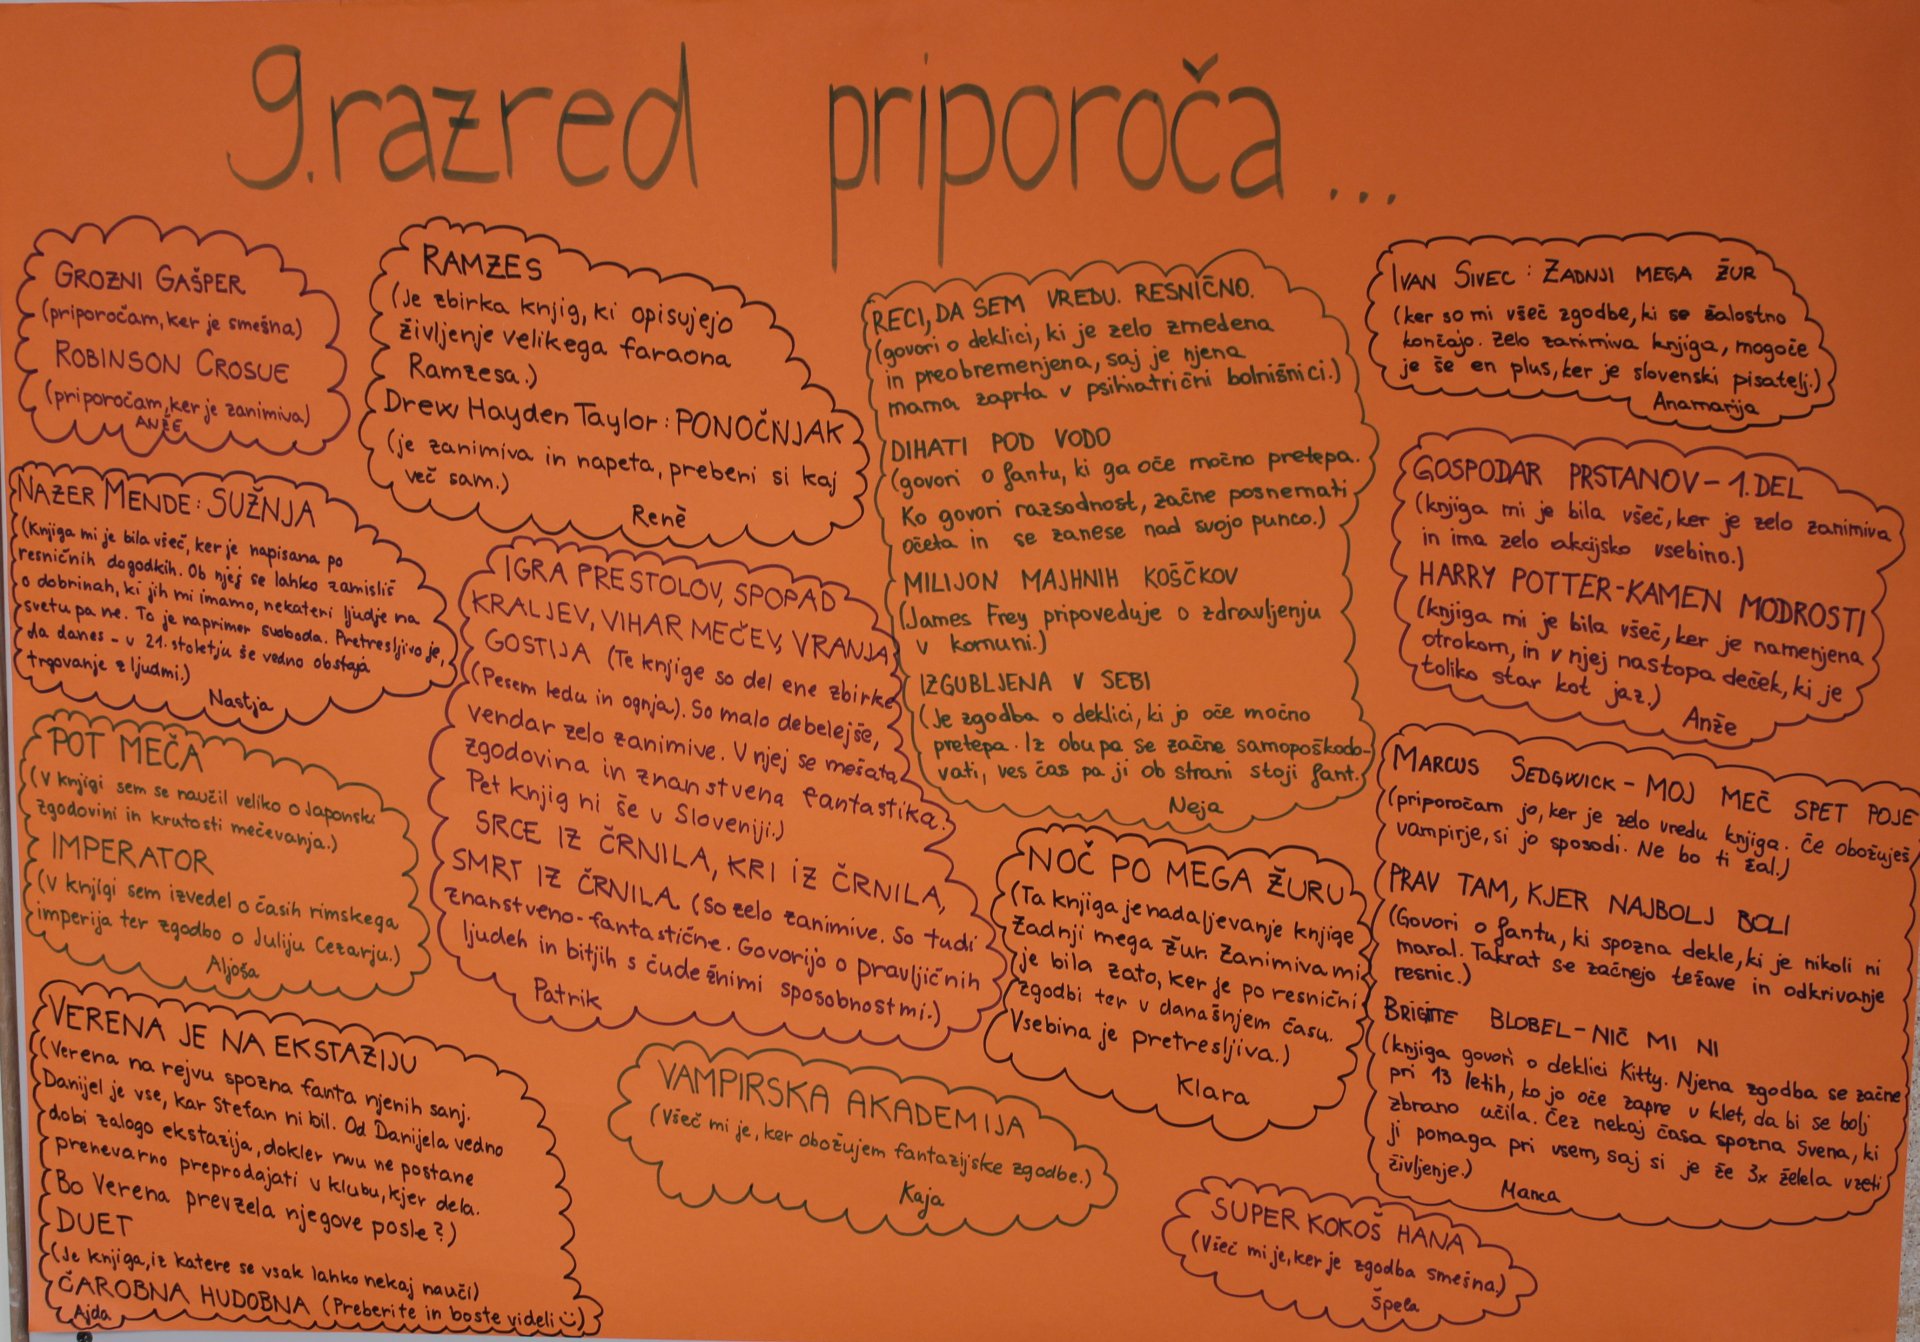 9.razred priporoča...
GROZNI GAŠPER
(priporočam, ker je smešna)
ROBINSON CROSUE
(priporočam, ker je zanimiva)
ANŽE
RAMZES
(Je zbirka knjig, ki opisujejo
življenje velikega faraona
Ramzesa.)
Drew Hayden Taylor: PONOČNJAK
(je zanimiva in napeta, preberi si kaj
več sam.)
Renè
RECI, DA SEM VREDU. RESNIČNO.
(govori o deklici, ki je zelo zmedena
in preobremenjena, saj je njena
mama zaprta v psihiatrični bolnišnici.)
DIHATI POD VODO
(govori o fantu, ki ga oče močno pretepa.
Ko govori razsodnost, začne posnemati
očeta in se zanese nad svojo punco.)
MILIJON MAJHNIH KOŠČKOV
(James Frey pripoveduje o zdravljenju
v komuni.)
IZGUBLJENA V SEBI
(Je zgodba o deklici, ki jo oče močno
pretepa. Iz obupa se začne samopoškodo-
vati, ves čas pa ji ob strani stoji fant.)
Neja
IVAN SIVEC: ZADNJI MEGA ŽUR
(ker so mi všeč zgodbe, ki se žalostno
končajo. Zelo zanimiva knjiga, mogoče
je še en plus, ker je slovenski pisatelj.)
Anamarija
NAZER MENDE: SUŽNJA
(Knjiga mi je bila všeč, ker je napisana po
resničnih dogodkih. Ob njej se lahko zamisliš
o dobrinah, ki jih mi imamo, nekateri ljudje na
svetu pa ne. To je naprimer svoboda. Pretresljivo je,
da danes - v 21. stoletju še vedno obstaja
trgovanje z ljudmi.)
Nastja
GOSPODAR PRSTANOV - 1. DEL
(knjiga mi je bila všeč, ker je zelo zanimiva
in ima zelo akcijsko vsebino.)
HARRY POTTER-KAMEN MODROSTI
(knjiga mi je bila všeč, ker je namenjena
otrokom, in v njej nastopa deček, ki je
toliko star kot jaz.)
Anže
IGRA PRESTOLOV, SPOPAD
KRALJEV, VIHAR MEČEV, VRANJA
GOSTIJA (Te knjige so del ene zbirke
(Pesem ledu in ognja). So malo debelejše,
vendar zelo zanimive. V njej se mešata
zgodovina in znanstvena fantastika.
Pet knjig ni še v Sloveniji.)
SRCE IZ ČRNILA, KRI IZ ČRNILA,
SMRT IZ ČRNILA. (So zelo zanimive. So tudi
znanstveno-fantastične. Govorijo o pravljičnih
ljudeh in bitjih s čudežnimi sposobnostmi.)
Patrik
POT MEČA
(V knjigi sem se naučil veliko o Japonski
zgodovini in krutosti mečevanja.)
IMPERATOR
(V knjigi sem izvedel o časih rimskega
imperija ter zgodbo o Juliju Cezarju.)
Aljoša
MARCUS SEDGWICK - MOJ MEČ SPET POJE
(priporočam jo, ker je zelo vredu knjiga. Če obožuješ
vampirje, si jo sposodi. Ne bo ti žal.)
PRAV TAM, KJER NAJBOLJ BOLI
(Govori o fantu, ki spozna dekle, ki je nikoli ni
maral. Takrat se začnejo težave in odkrivanje
resnic.)
BRIGITTE BLOBEL - NIČ MI NI
(knjiga govori o deklici Kitty. Njena zgodba se začne
pri 13 letih, ko jo oče zapre v klet, da bi se bolj
zbrano učila. Čez nekaj časa spozna Svena, ki
ji pomaga pri vsem, saj si je že 3x želela vzeti
življenje.)
Manca
NOČ PO MEGA ŽURU
(Ta knjiga je nadaljevanje knjige
Zadnji mega žur. Zanimiva mi
je bila zato, ker je po resnični
zgodbi ter v današnjem času.
Vsebina je pretresljiva.)
Klara
VERENA JE NA EKSTAZIJU
(Verena na rejvu spozna fanta njenih sanj.
Danijel je vse, kar Stefan ni bil. Od Danijela vedno
dobi zalogo ekstazija, dokler mu ne postane
prenevarno preprodajati v klubu, kjer dela.
Bo Verena prevzela njegove posle?)
DUET
(Je knjiga, iz katere se vsak lahko nekaj nauči)
ČAROBNA HUDOBNA (Preberite in boste videli :))
Ajda
VAMPIRSKA AKADEMIJA
(Všeč mi je, ker obožujem fantazijske zgodbe.)
Kaja
SUPER KOKOŠ HANA
(Všeč mi je, ker je zgodba smešna.)
Špela